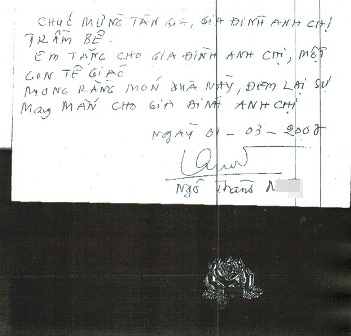 CHÚC MỪNG TÂN GIA, GIA ĐÌNH ANH CHỊ
TRẦM BÊ.
EM TẶNG CHO GIA ĐÌNH ANH CHỊ, MỘT
CON TÊ GIÁC
MONG RẰNG MÓN QUÀ NÀY, ĐEM LẠI SỰ
MAY MẮN CHO GIA ĐÌNH ANH CHỊ
NGÀY 01 - 03 - 2008
Ngô Thanh N